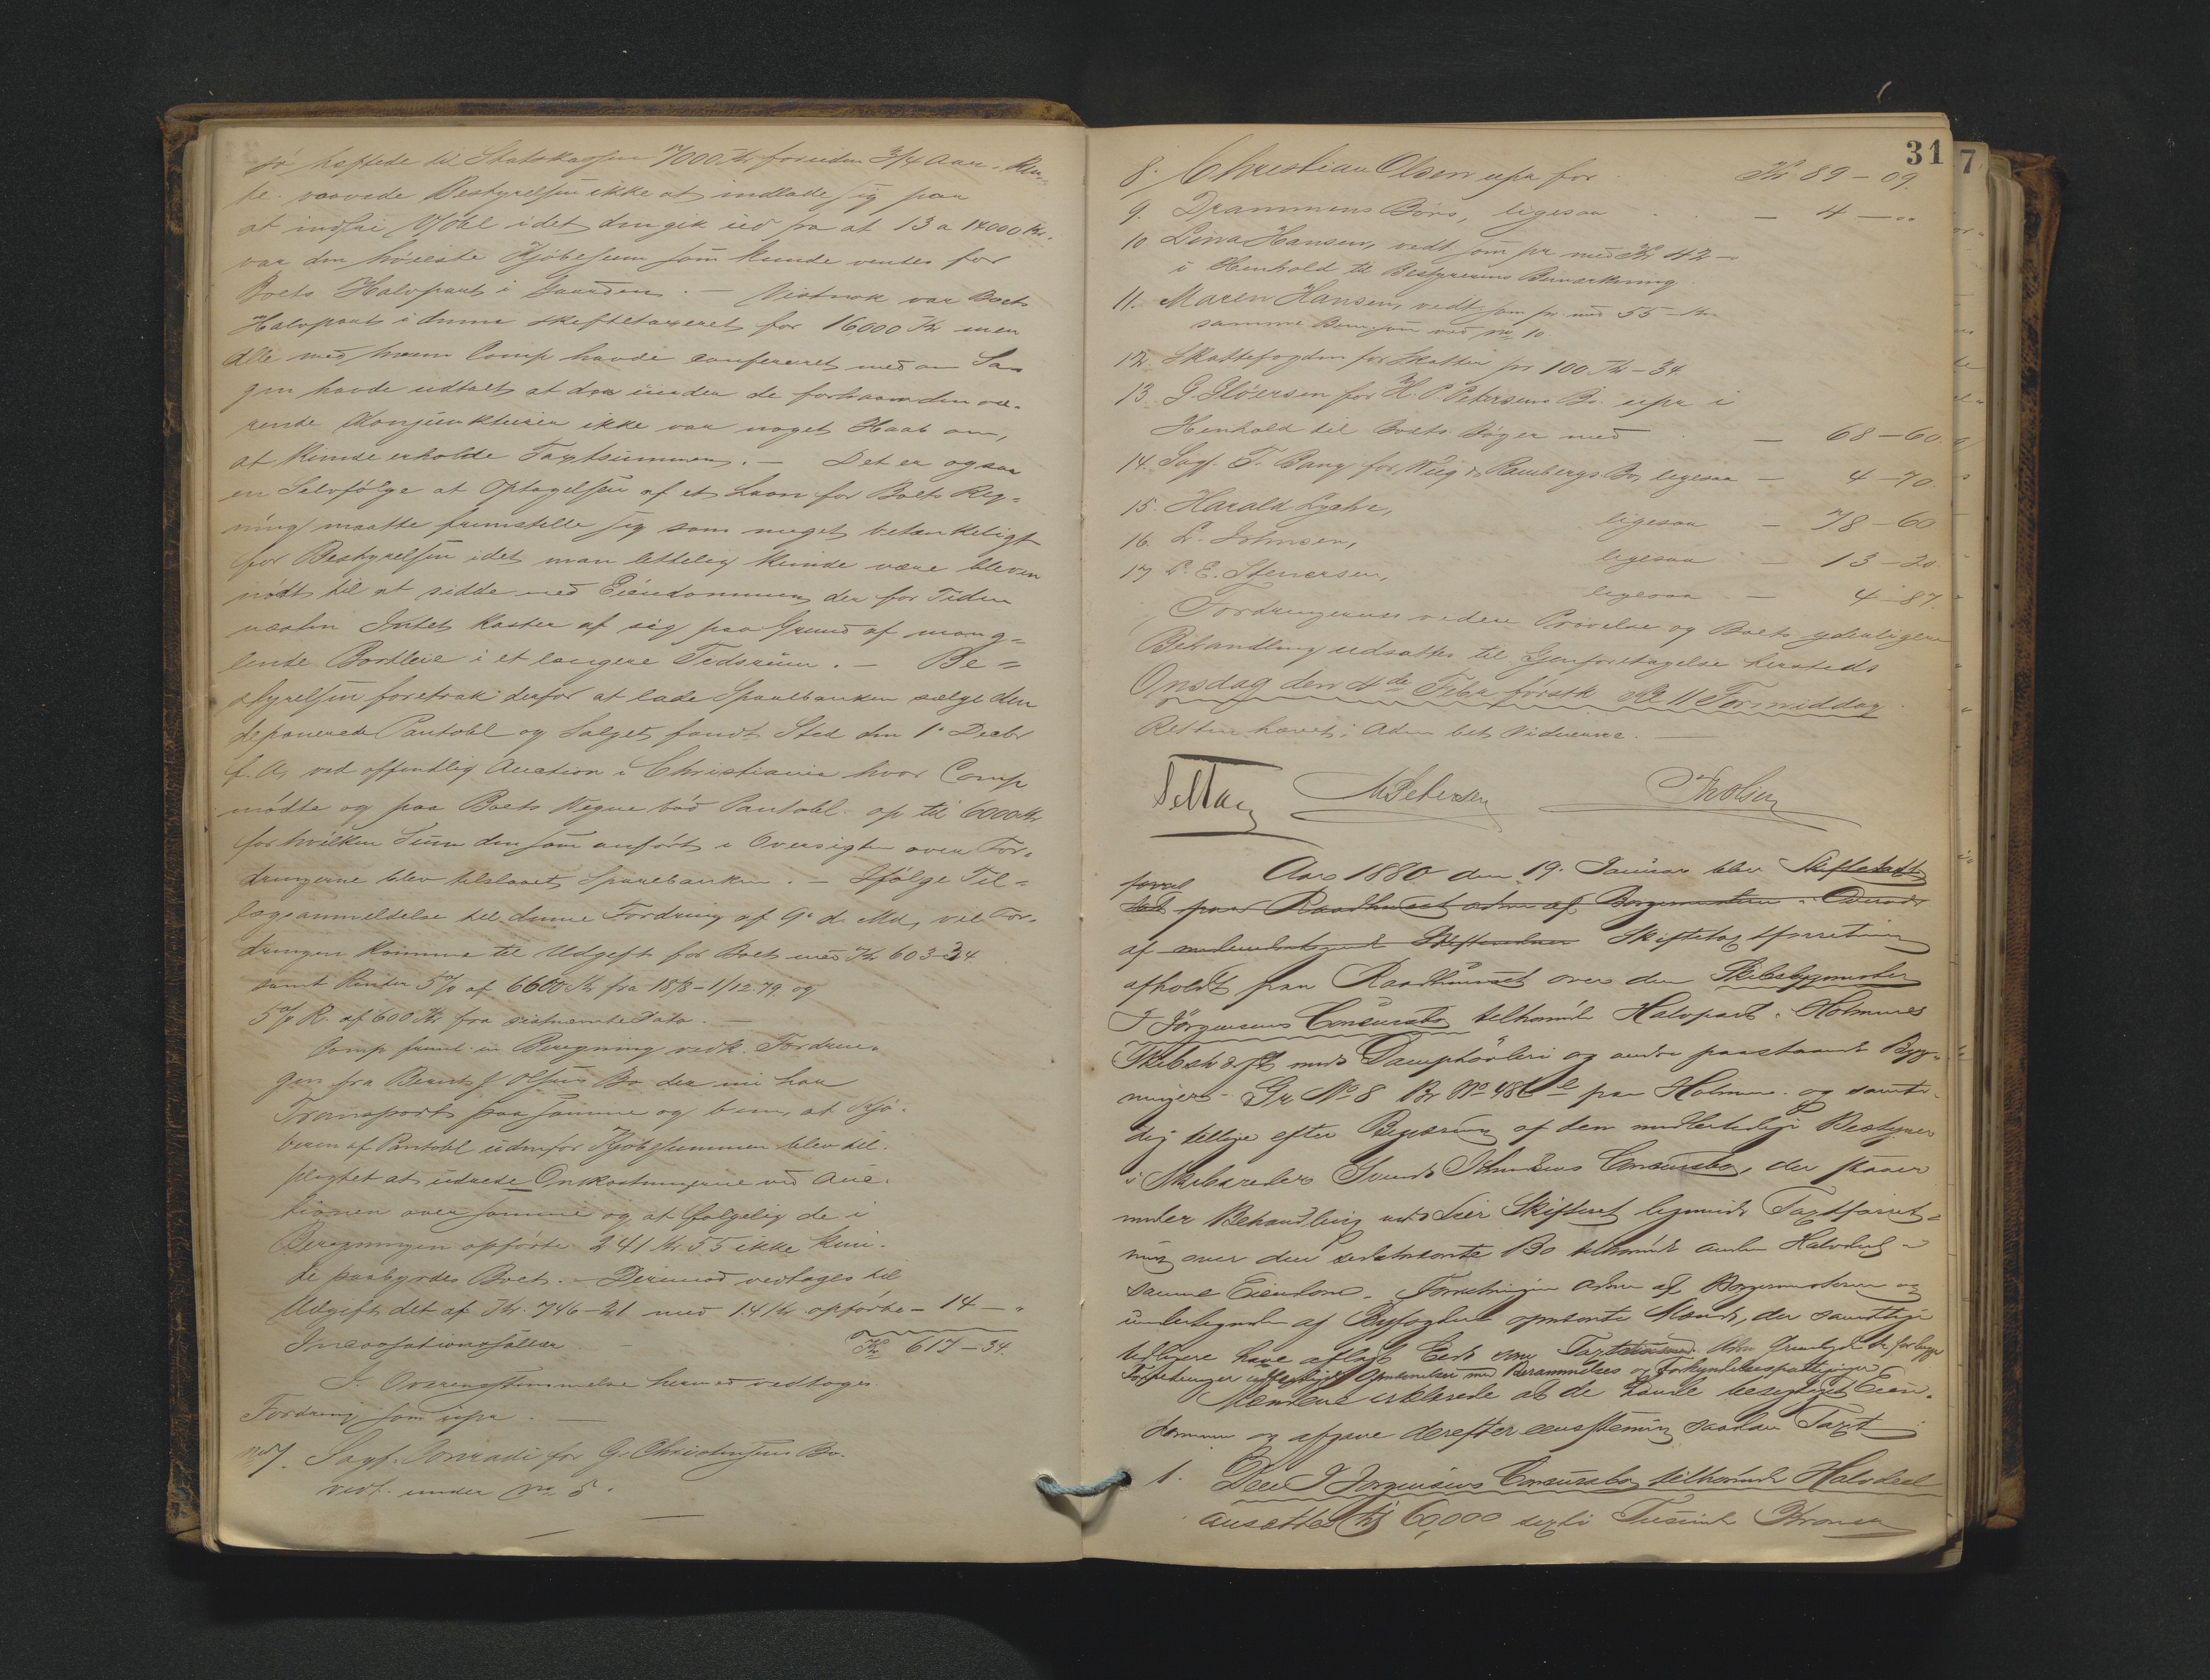 hæftede til Statskassen 7000 Kr foruden 3/4 Aars Ren-
te. vovede Bestyrelsen ikke at indlade sig paa
at indfri Obl idet den gik ud fra at 13 a 14000 Kr.
var den høieste Kjøbesum som kunde ventes for
Boets Halvpart i Gaarden. — Vistnok var Boets
Halvpart i denne skiftetaxeret for 16000 Kr men
Alle med hvem Comp havde confereret med om Sa-
gen havde udtalt at der under de forhaanden væ-
rende Konjunkturer ikke var noget Haab om,
at kunde erholde Taxtsummen. — Det er ogsaa
en Selvfølge at Optagelsen af et Laan for Boets Reg-
ning maatte fremstille sig som meget betænkeligt
for Bestyrelsen idet man lettelig kunde være bleven
nødt til at sidde med Eiendommen der for Tiden
næsten Intet kaster af sig paa Grund af mang-
lende Bortleie i et længere Tidsrum. — Be-
styrelsen foretrak derfor at lade Sparebanken sælge den
deponerede Pantobl og Salget fandt Sted den 1' Decbr
f. A, ved offentlig Auction i Christiania hvor Comp
mødte og paa Boets Vegne bød Pantobl. op til 6000 Kr
for hvilken Sum den som anført i Oversigten over For-
dringerne blev tilslaaet Sparebanken. — Ifølge Til-
lægsanmeldelse til denne Fordring af 9' d. Md, vil For-
dringen komme til Udgift for Boet med Kr 603-34
samt Renter 5% af 6600 Kr fra 18/8 - 1/12.79 og
5% R. af 600 Kr fra sidstnævnte Dato. —
Comp freml. en Beregning vedk. Fordrin-
gen fra Bernt Olsens Bo der nu har
Transport paa samme og bem, at Kjø-
beren af Pantobl udenfor Kjøbesummen blev til-
pligtet at udrede Omkostningerne ved Auc-
tionen over samme og at følgelig de i
Beregningen opførte 241 Kr. 55 ikke kun-
de paabyrdes Boet. — Derimod vedtages til
Udgift det af Kr. 746-21 med 14 Kr opførte - 14 — "
Incassationssallær — Kr 617-34.
I Overensstemmelse hermed vedtoges
Fordring som upr. —
No 7. Sagf. Conradi for G. Christensens Bo.
vedt. under No 5.
31
7
8. Christian Olsen upr for Kr 89-09.
9. Drammens Børs, ligesaa — 4 — "
10 Lina Hansen, vedt som pr med Kr 42 —
i Henhold til Bestyrerens Bemærkning.
11. Maren Hansen, vedt som pr. med 55 - Kr.
samme Bem som ved No 10.
12. Skattefogden for Skatter pr 100 Kr - 34
13. G. Gløersen for H. P. Petersens Bo. upr i
Henhold til Boets Bøger med — 68-60.
14. Sagf. T. Bang for Wiig & Rambergs Bo, ligesaa — 4-70.
15. Harald Lyche, ligesaa — 78-60
16. L. Johnsen, ligesaa — 13-20
17 L. E. Stenersen, ligesaa — 4-87.
Fordringernes videre Prøvelse og Boets yderligere
Behandling udsattes til Gjenforetagelse hersteds
Onsdag den 4de Febr førstk Kl 11 Formiddag
Retten hævet; Adm bet. Vidnerne. —
M Petersen Th Olsen
Aar 1880 den 19. Januar blev Skifteretts
paa Raadhuset adm af Borgermesteren i Overvær
af medundertegnede Skiftevidner Skiftetaxtforretning
afholdt paa Raadhuuset over den Skibsbygmester
J Jörgensens Concursbo tilhørende Halvpart i Holmens
Skibsværft med Damphövleri og andre paastaaende Byg-
ninger Gr No 8 Br No 486 paa Holmen. og samti-
dig tillige efter Begjæring af den midlertidige Bestyrer
i Skibsreder Svend Concursbo, der staaer
under Behandling ved Lier Skifteret lignende Taxtforret-
ning over den sidstnævnte Bo tilhørende anden Halvdeel i
samme Eiendom. Forretningen adm af Borgermesteren og
undertegnede af Byfogden opnævnte Mænd, der samtlige
tidligere have aflagt Eed som Taxtmænd. Adm fremlagde
Opnævnelser med Berammelses og Forkyndelsespaategninger
Mændene erklærede at de havde besigtiget Eien-
dommen og afgave derefter eenstemmig saadan Taxt:
1. Den J Jörgensens Concursbo tilhørende Halvdeel
ansættes til 60,000 sexti Tusinde Kroner